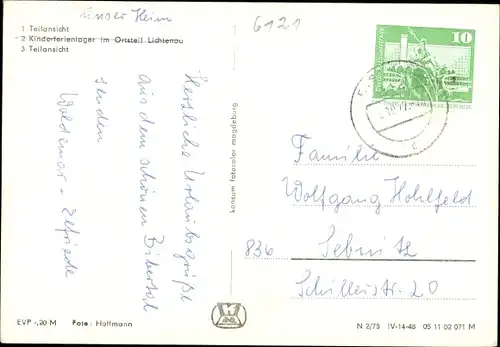 unser Heim
6121
1 Teilansicht
2 Kinderferienlager im Ortsteil Lichtenau
3 Teilansicht
Herzliche Urlaubsgrüße
aus dem schönen Bibertal
senden
Waldemar - Elfriede
konsum fotocolor magdeburg
10
Familie
Wolfgang Hohlfeld
836 Sebnitz
Schillerstr. 20
EVP -,20 M Foto: Hoffmann
N 2/75 IV-14-48 05 11 02 071 M